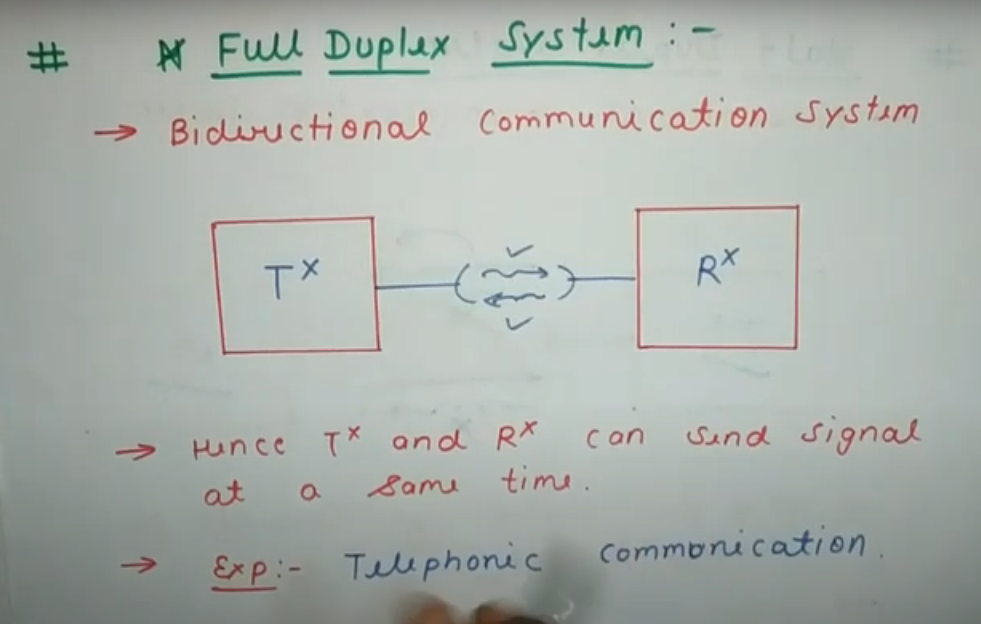 # Full Duplex System :-
→ Bidirectional Communication System
Tˣ Rˣ
→ Hence Tˣ and Rˣ can send signal
at a same time.
→ Exp:- Telephonic commonication.